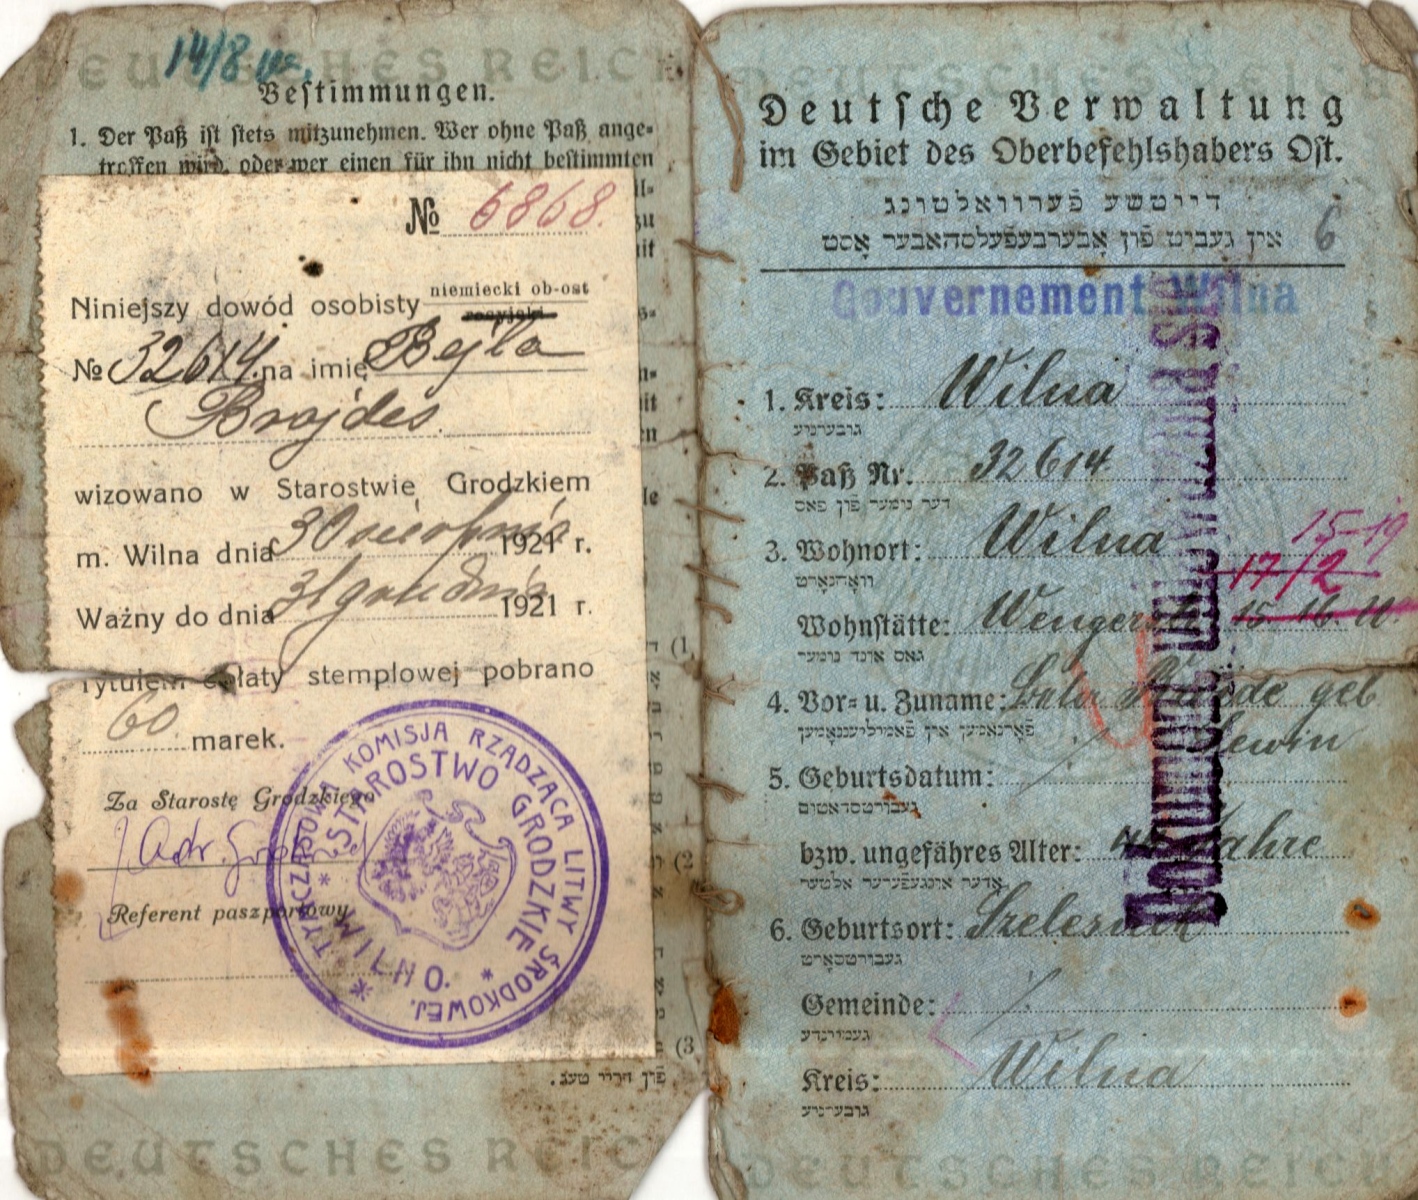 DEUTSCHES REICH
14/8
Bestimmungen.
1. Der Paß ist stets mitzunehmen. Wer ohne Paß ange-
troffen wird, oder wer einen für ihn nicht bestimmten
№ 6868.
niemiecki ob-ost
Niniejszy dowód osobisty rosyjski
№ 32614. na imię Bejla
Brojdes
wizowano w Starostwie Grodzkiem
m. Wilna dnia 30 sierpnia 1921 r.
Ważny do dnia 31 grudnia 1921 r.
Tytułem opłaty stemplowej pobrano
60 marek.
Za Starostę Grodzkiego
Referent paszportowy
TYMCZASOWA KOMISJA RZĄDZĄCA LITWY ŚRODKOWEJ.
* STAROSTWO GRODZKIE *
(1
(2
(3
פון דריי טעג.
DEUTSCHES REICH
DEUTSCHES REICH
Deutsche Verwaltung
im Gebiet des Oberbefehlshabers Ost.
דייטשע פֿערוואלטונג
אין געביט פֿון אָבערבעפֿעלסהאבער אָסט
6
Gouvernement Wilna
1. Kreis: Wilna
גובערניע
2. Paß Nr. 32614
דער נומער פֿון פאס
3. Wohnort: Wilna
וואָהנאָרט
15-19
17/2
Wohnstätte: 15-16
גאס אונד נומער
4. Vor- u. Zuname: geb
פֿאָרנאמען אין פֿאמיליענאמען
Lewin
5. Geburtsdatum: /
געבורטסדאטום
bzw. ungefähres Alter: Jahre
אָדער אונגעפֿערער אלטער
6. Geburtsort:
געבורטסאָרט
Gemeinde: /
געמיינדע
Kreis: Wilna
גובערניע
DEUTSCHES REICH